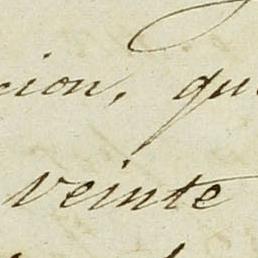 cion, qu
veinte